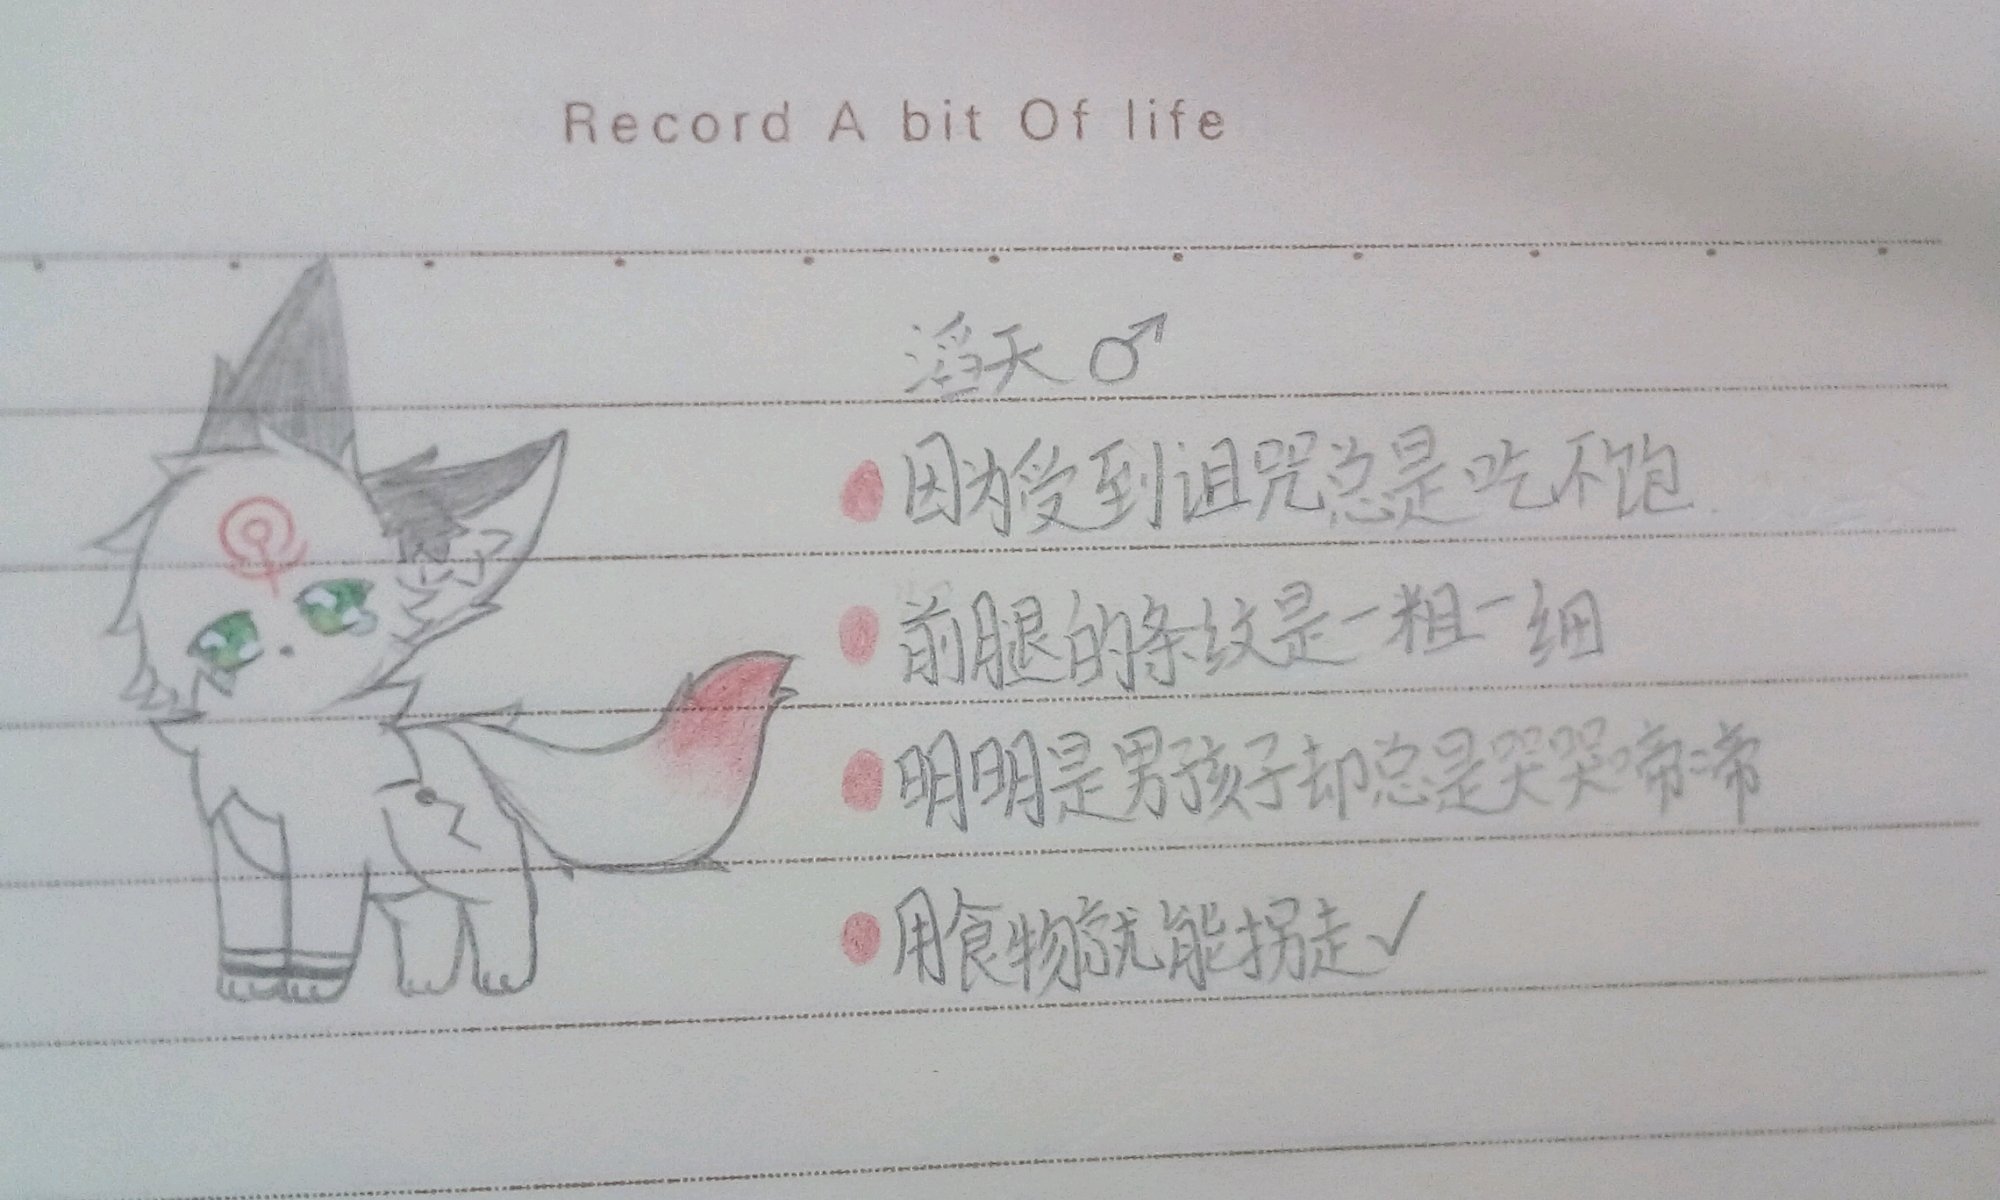 Record A bit Of life
滔天 ♂
因为受到诅咒总是吃不饱
前腿的条纹是一粗一细
明明是男孩子却总是哭哭啼啼
用食物就能拐走✓